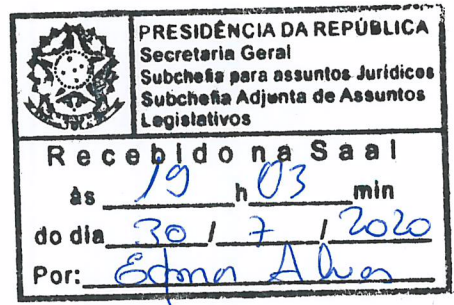 PRESIDÊNCIA DA REPÚBLICA
Secretaria Geral
Subchefia para assuntos Jurídicos
Subchefia Adjunta de Assuntos
Legislativos
Recebido na Saal
às 19 h 03 min
do dia 30 / 7 / 2020
Por: